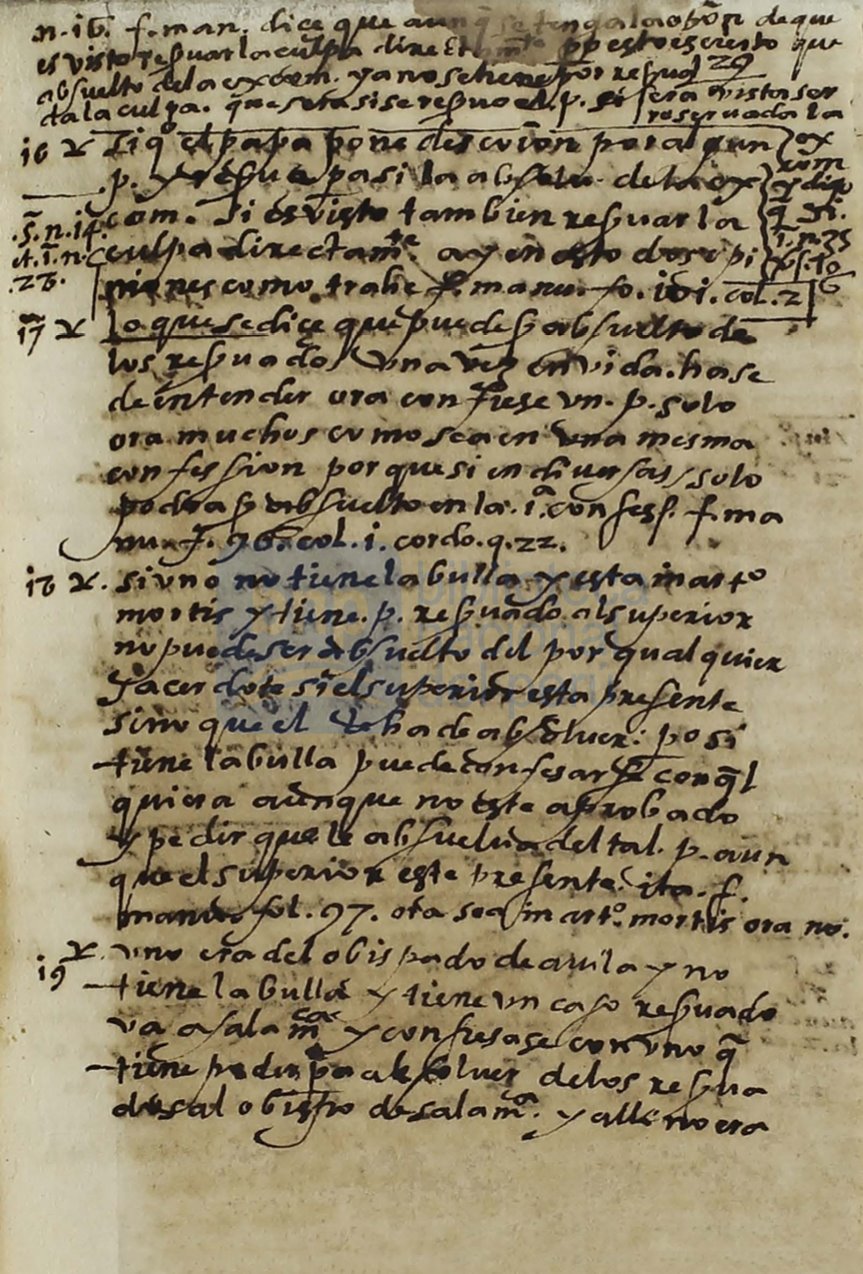 n. 16. f. man. dice que aunq̃ se tenga la opõn de que
es visto resṽar la culpa directamte. esto es cierto que
absuelto dela excom. ya no se tiene por resṽa
da la culpa.
16 Si q̃ el papa pone descoion para algun
p. y resṽe pa si la absolu. dela ex
com. Si es visto tambien resṽar la
culpa directamte. ay en esto dos opi
niones como trahe f. manu. fo. 101. col. 2
17 Lo que se dice que puede sẽ absuelto de
los resṽados una vez en vida. hase
de entender ora confiese un. p. solo
ora muchos como sea en una mesma
confession porque si en diversas, solo
podra sẽ absuelto en la. 1ª. confess. f. ma
nu. f. 96. col. 1. cordo. q. 22.
18 si uno no tiene la bulla y esta in arto
mortis y tiene. p. resṽado al superior
no puede ser absuelto del por qualquier
sacerdote si el superior esta presente
sino que el le ha de absolver. po si
tiene la bulla puede confesarse con q̃l
quiera aunque no este aprobado
y pedir que le absuelva del tal. p. aun
que el superior este presente. ita. f.
manu. fol. 97. ora sea in arto. mortis ora no.
19 uno era del obispado de avila y no
tiene la bulla y tiene un caso resṽado
va a salamca y confiesase con uno q̃
tiene poder pa absolver delos resṽa
dos al obispo de salamca. y alli no era